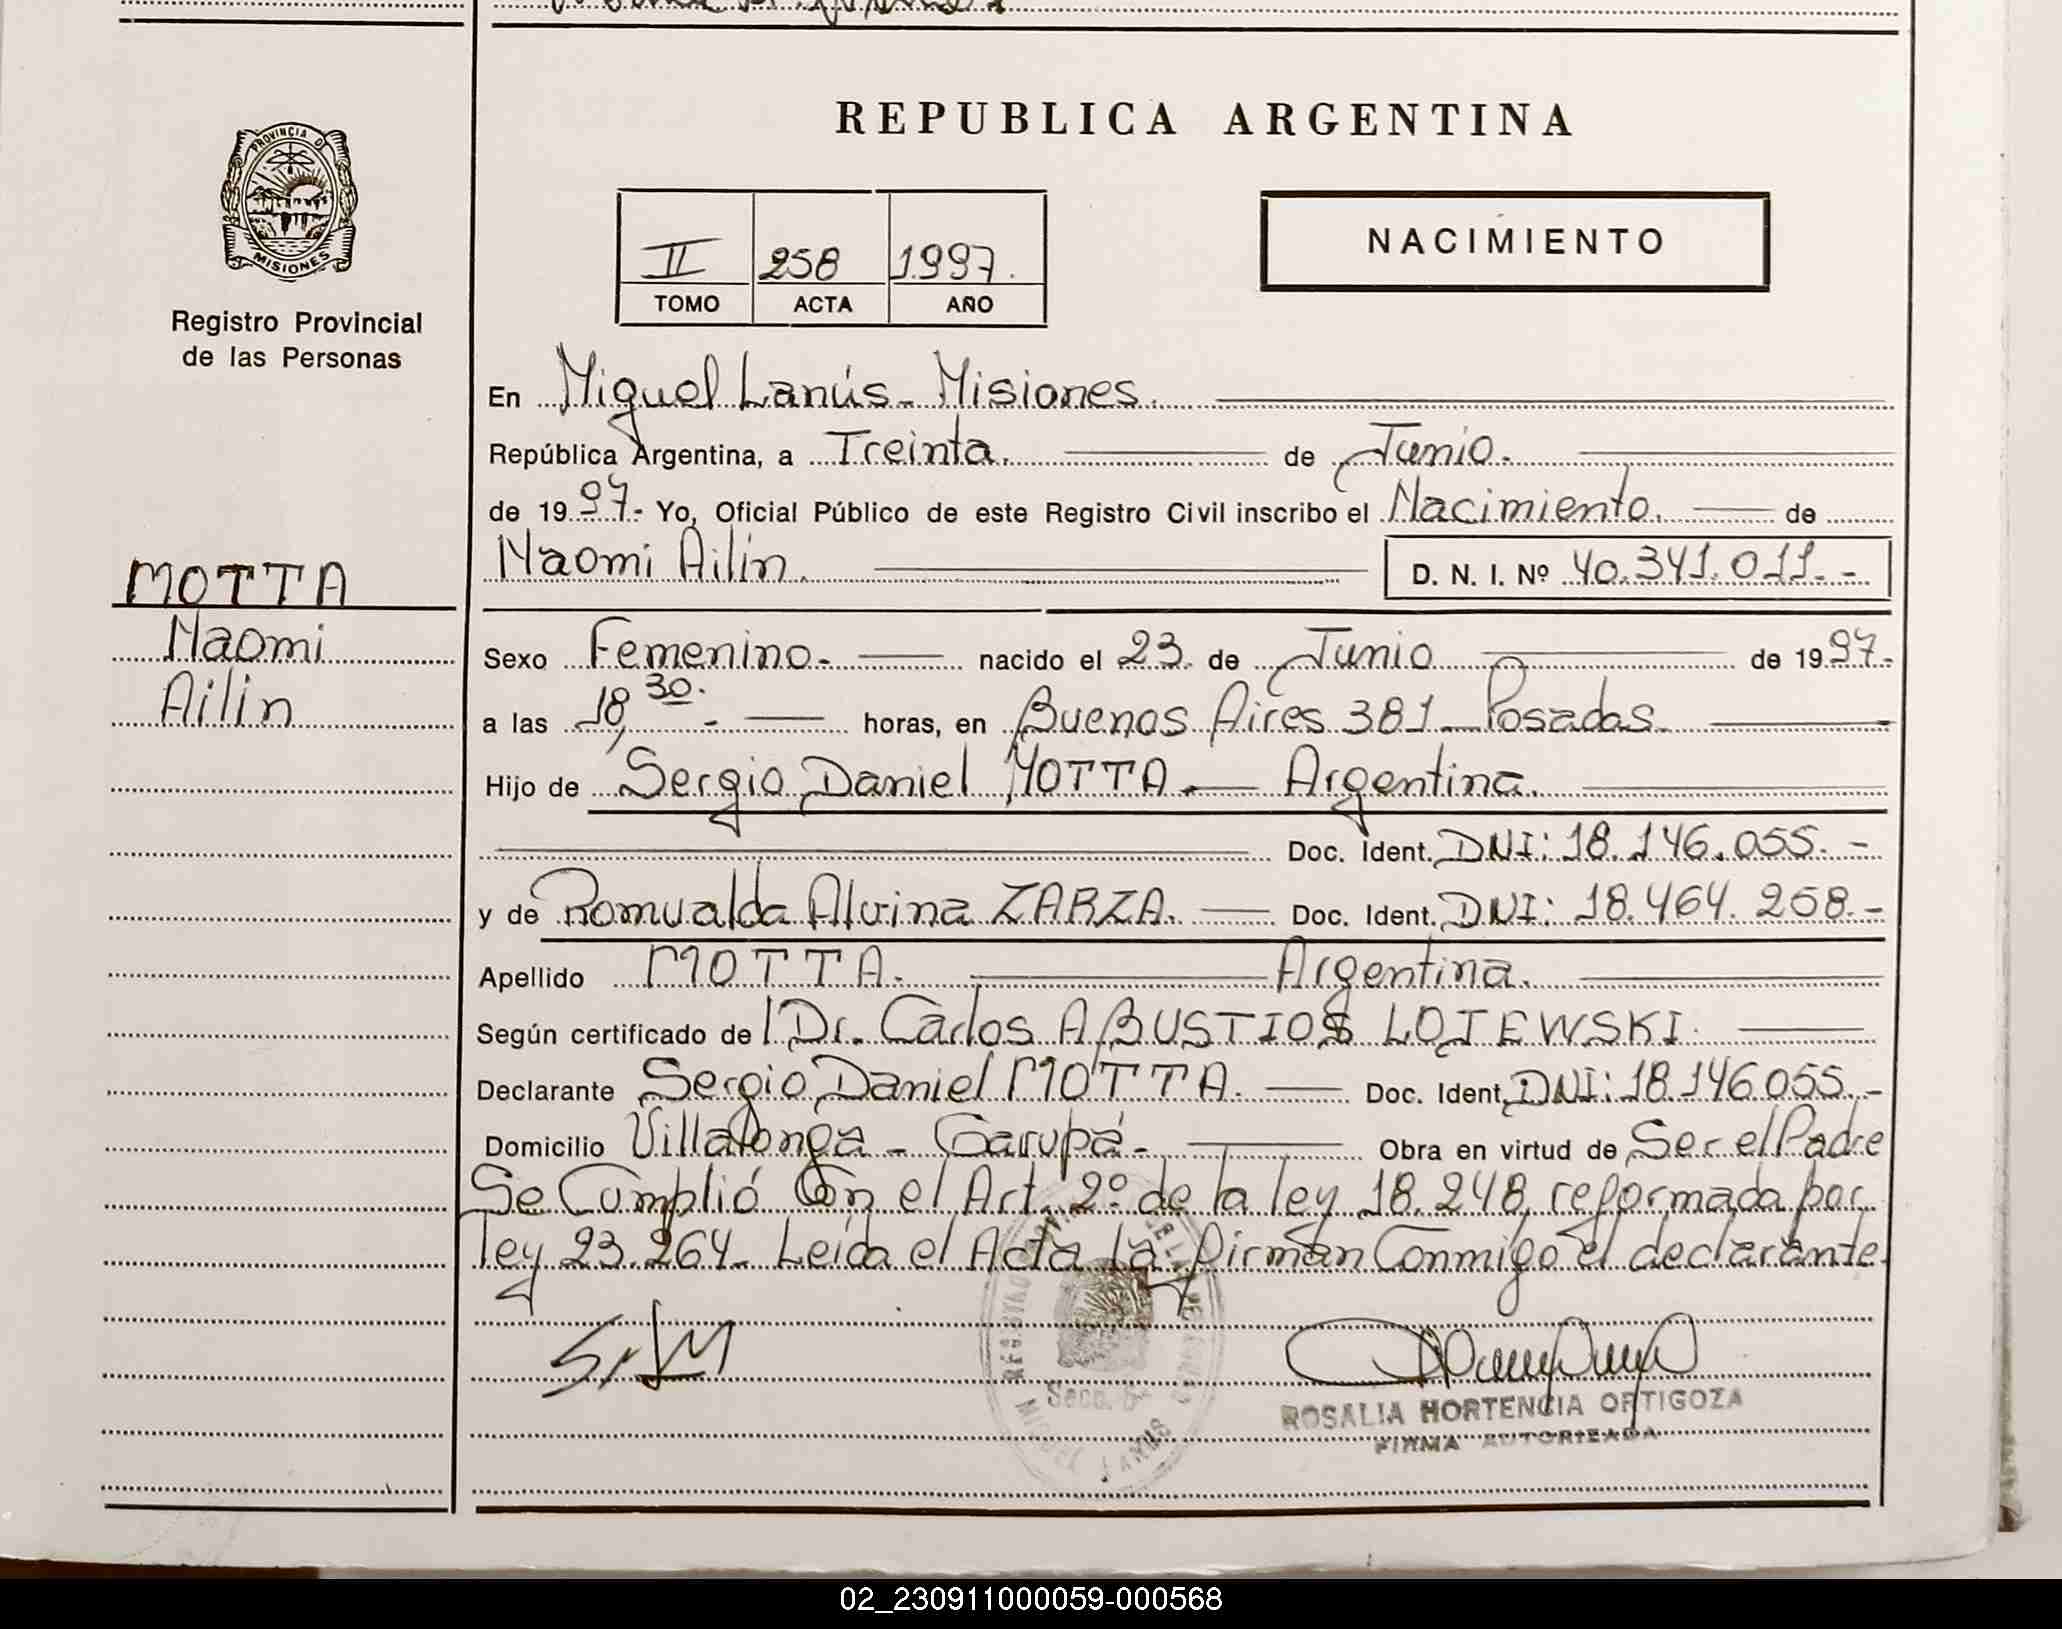 REPUBLICA ARGENTINA
PROVINCIA D
MISIONES
Registro Provincial
de las Personas
II 258 1997.
TOMO ACTA AÑO
NACIMIENTO
En Miguel Lanús - Misiones.
República Argentina, a Treinta. de Junio.
de 1997.- Yo, Oficial Público de este Registro Civil inscribo el Nacimiento. de
Naomi Ailin. D. N. I. Nº 40.341.011.-
MOTTA
Naomi
Ailin
Sexo Femenino.- nacido el 23. de Junio de 1997.-
a las 18,30.- horas, en Buenos Aires 381 - Posadas.
Hijo de Sergio Daniel MOTTA.- Argentina.
Doc. Ident. DNI: 18.146.055.-
y de Romualda Alvina ZARZA. Doc. Ident. DNI: 18.464.258.-
Apellido MOTTA. Argentina.
Según certificado de l Dr. Carlos A BUSTIOS LOJEWSKI.
Declarante Sergio Daniel MOTTA. Doc. Ident. DNI: 18.146.055.-
Domicilio Villalonga - Garupá.- Obra en virtud de Ser el Padre
Se Cumplió Con el Art. 2º de la ley 18.248, reformada por
ley 23.264.- Leída el Acta la firman Conmigo el declarante.
Secc.
ROSALIA HORTENCIA ORTIGOZA
FIRMA AUTORIZADA
02_230911000059-000568